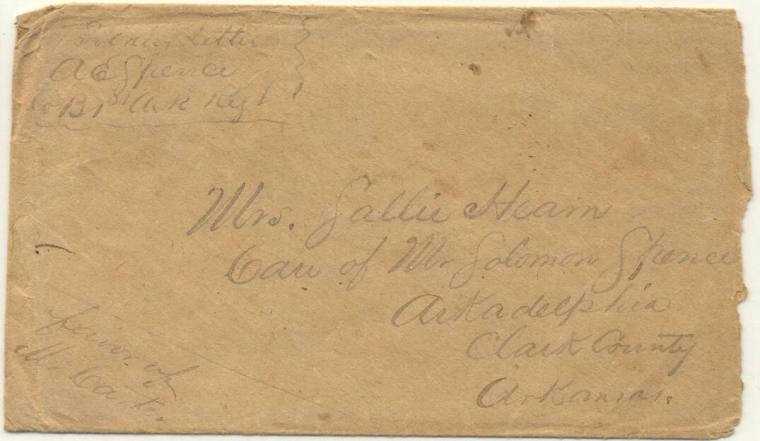 Soldiers Letter
A E Spence
Co B 1st Ark Regt
Mrs. Sallie Hearn
Care of Mr Solomon Spence
Arkadelphia
Clark County
Arkansas.
favor of
Mr.